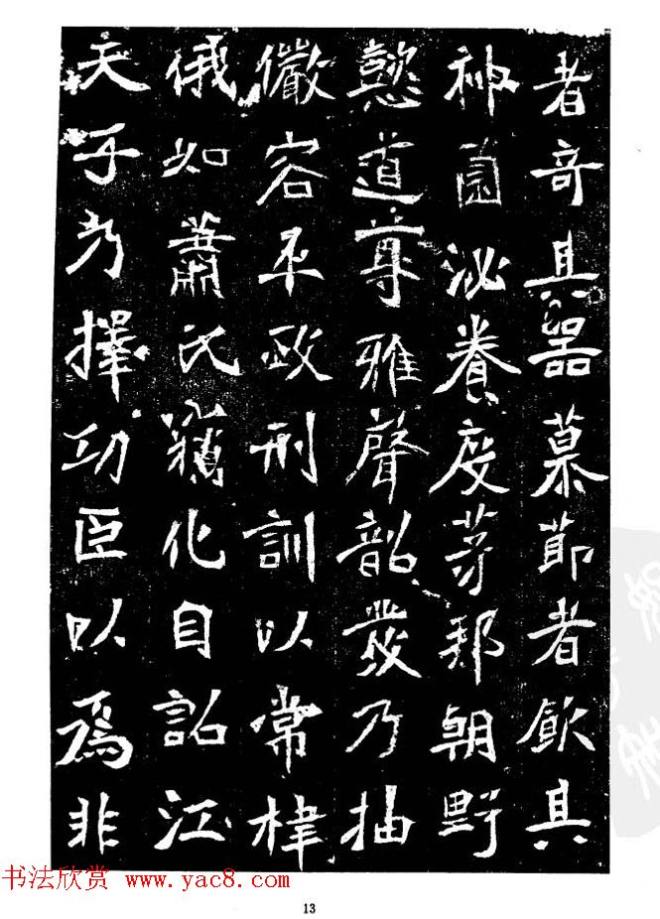 者奇其器慕節者飲其
神泌眷度等邦朝野
懿道尊雅聲韶發乃抽
儼容丕政刑訓以常
俄如蕭氏化自詔江
天子乃擇功臣以爲非
书法欣赏 www.yac8.com
13